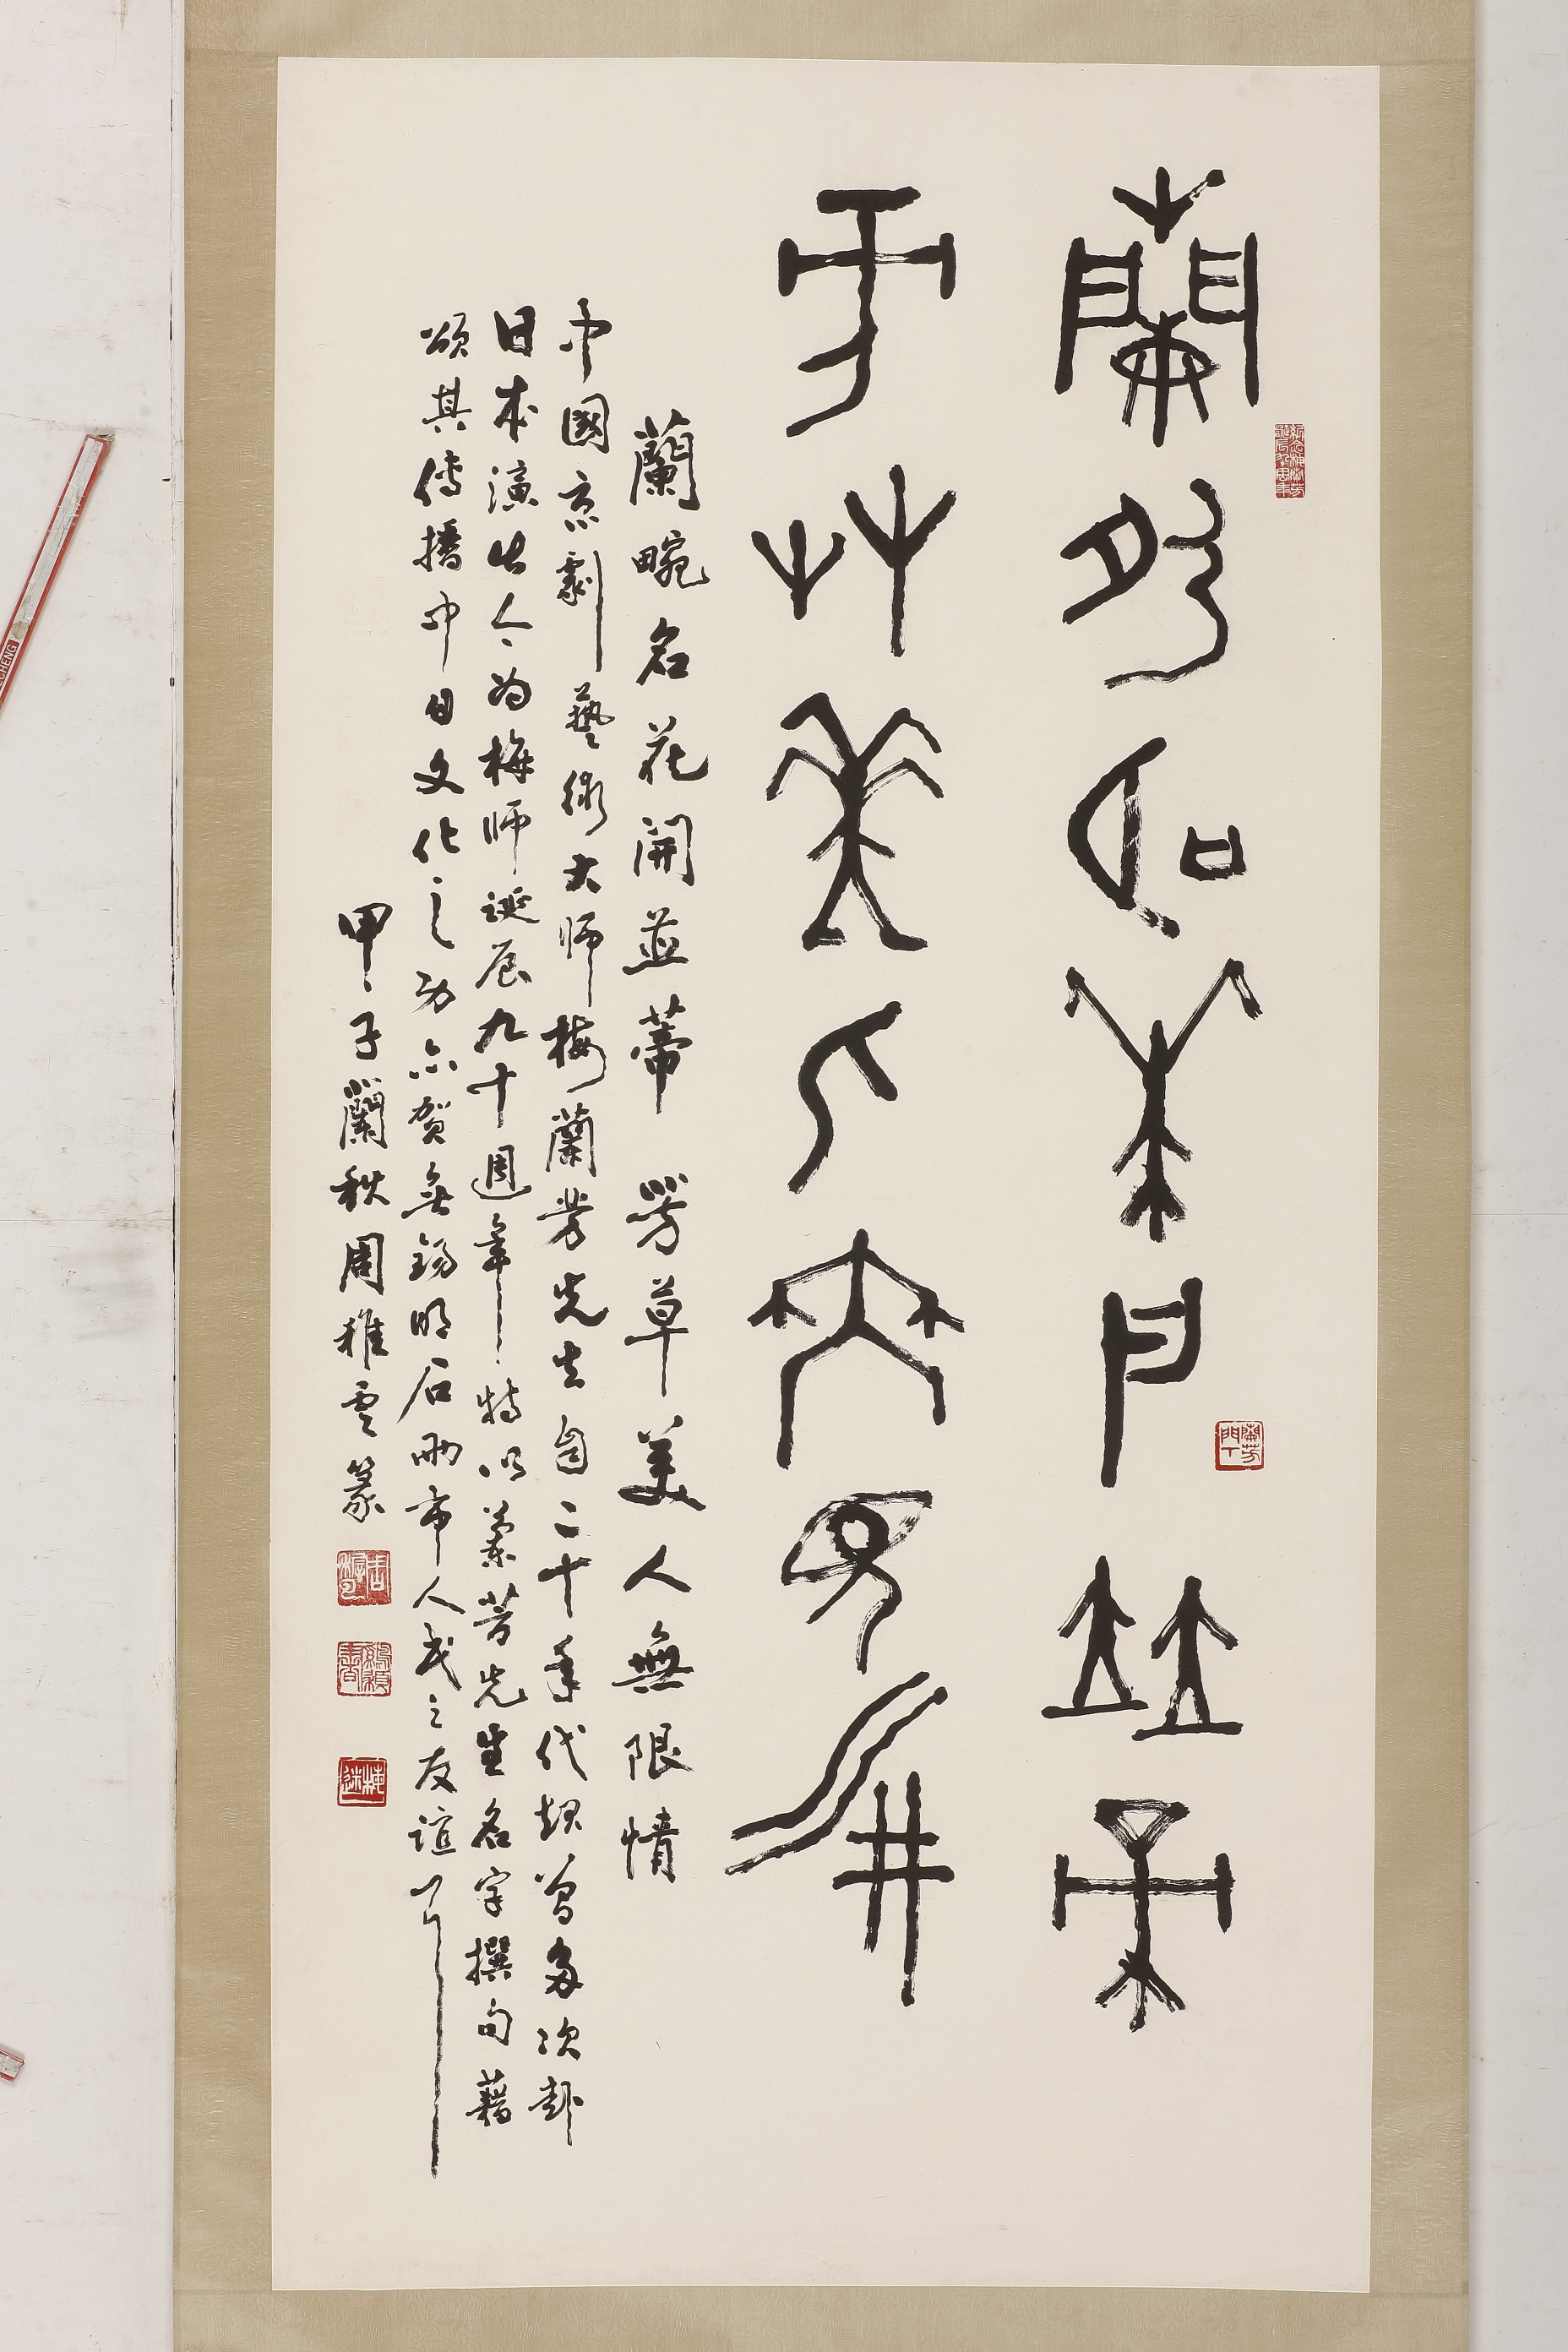 蘭畹名花開並蒂
芳草美人無限情
蘭畹名花開並蒂 芳草美人無限情
中國京劇藝術大師梅蘭芳先生自二十年代起曾多次赴
日本演出今為梅師誕辰九十週年特以蘭芳先生名字撰句藉
頌其傳播中日文化之功亦賀無錫明石兩市人民之友誼
甲子蘭秋周稚雲篆
蘭芳門下